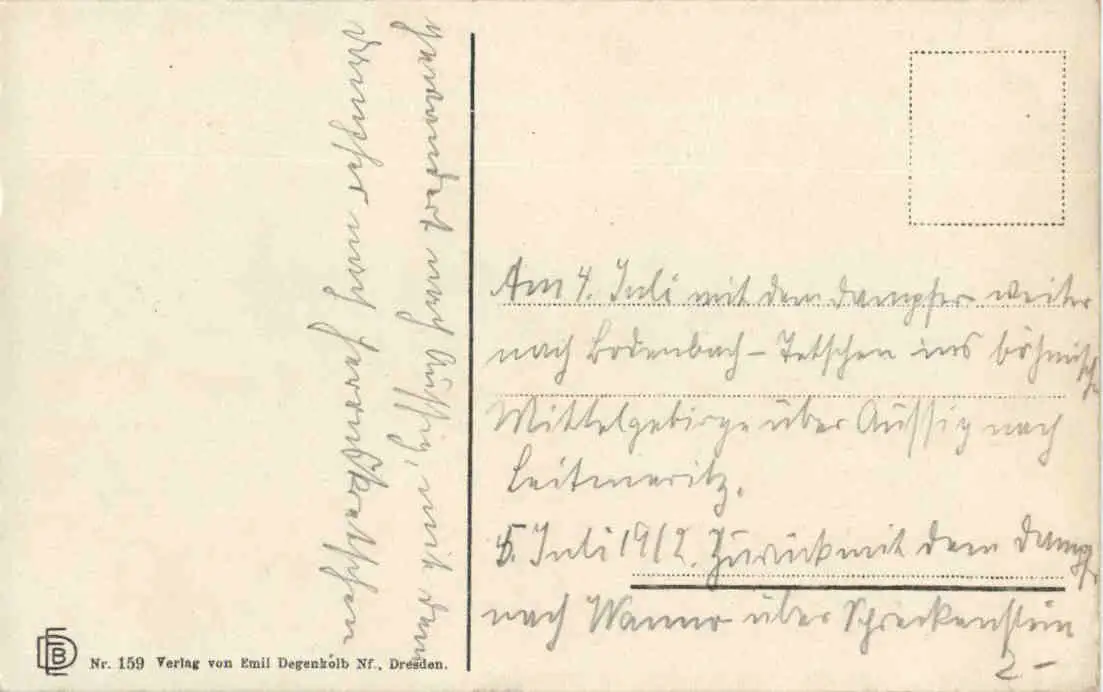 Am 4. Juli mit dem Dampfer weiter
nach Bodenbach – Tetschen ins böhmische
Mittelgebirge über Aussig nach
Leitmeritz.
5. Juli 1912. Zurück mit dem Dampfer
nach Wannow über Schreckenstein
2 –
gewandert nach Aussig, mit dem
Dampfer nach Herrnskretschen
DEB Nr. 159 Verlag von Emil Degenkolb Nf., Dresden.